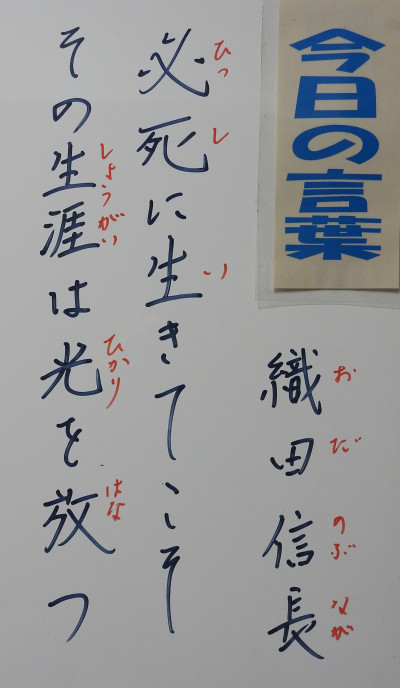 今日の言葉
織田信長
おだのぶなが
必死に生きてこそ
ひっしい
その生涯は光を放つ
しょうがいひかりはな